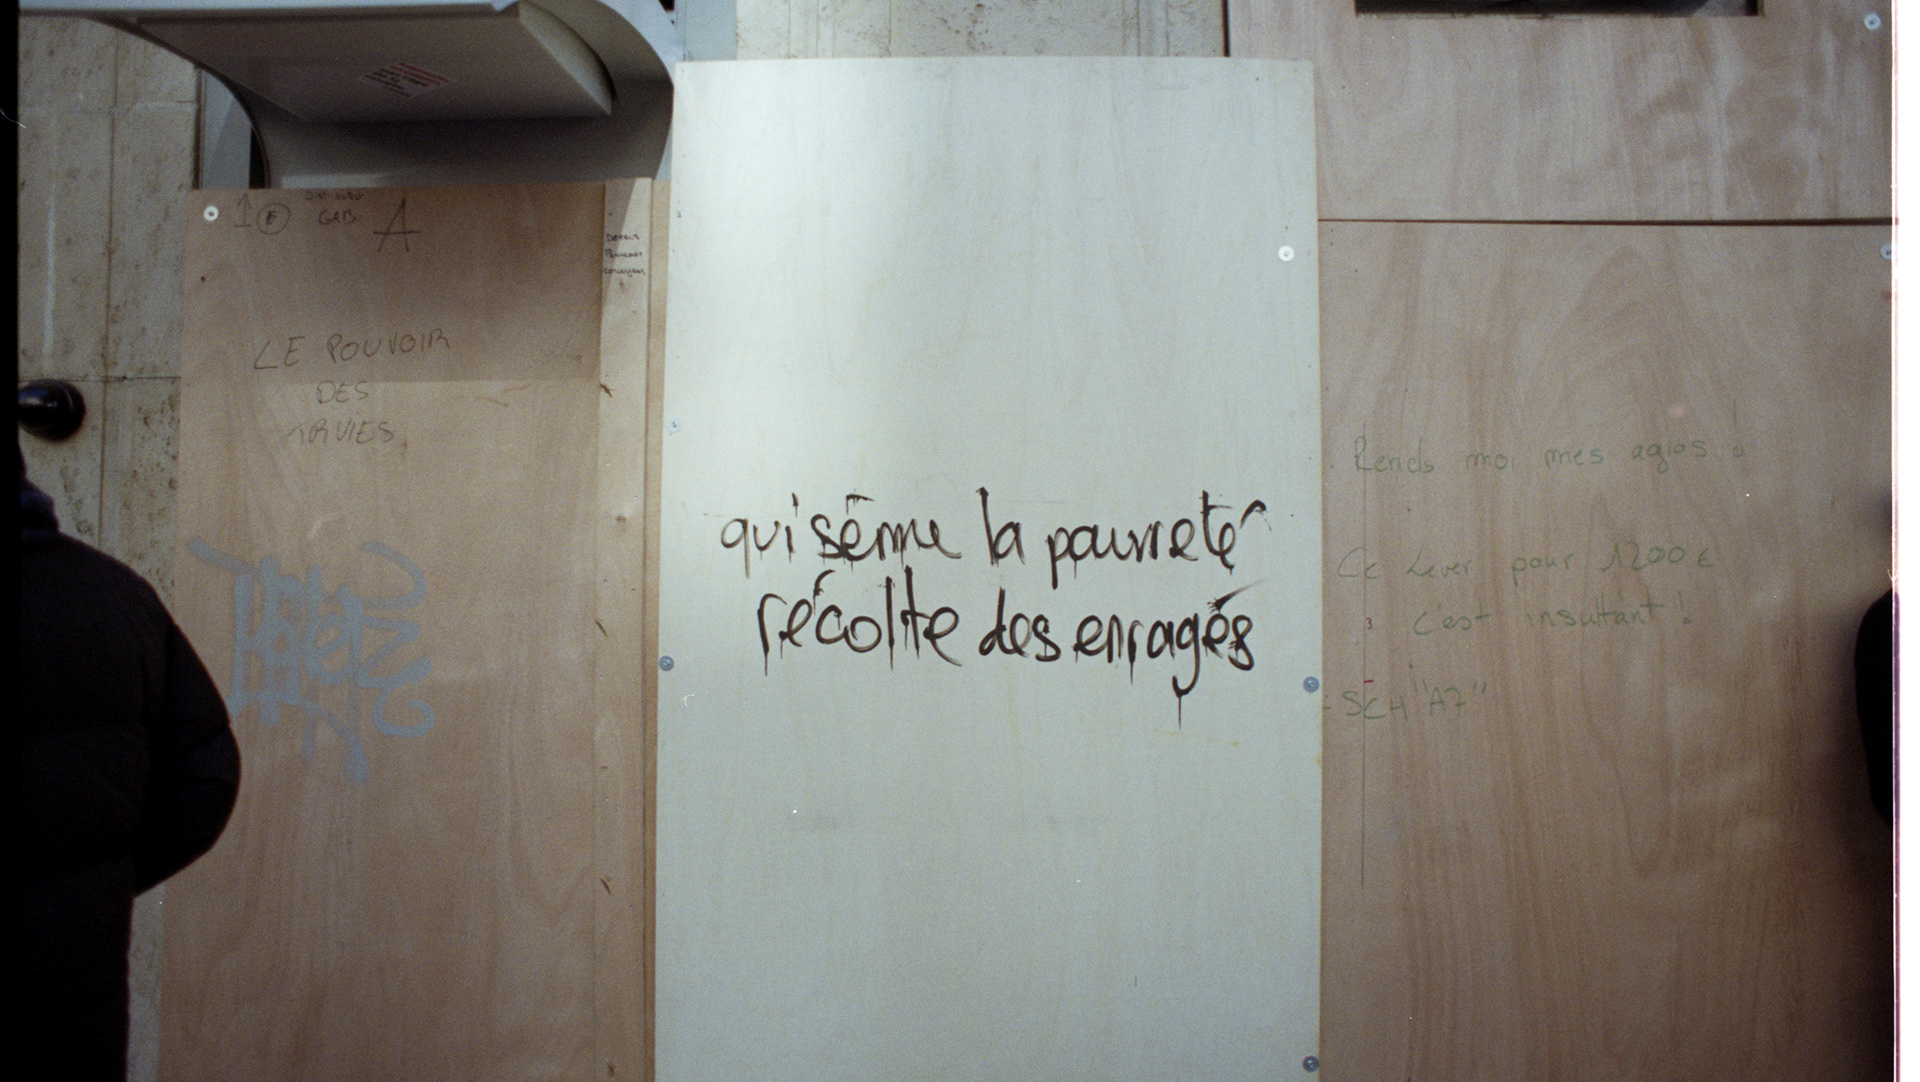 GAB A
LE POUVOIR
DES
TRUIES
qui sème la pauvreté
récolte des enragés
Rends moi mes agios !
Ce Lever pour 1200 €
c'est insultant !
- SCH "A7"